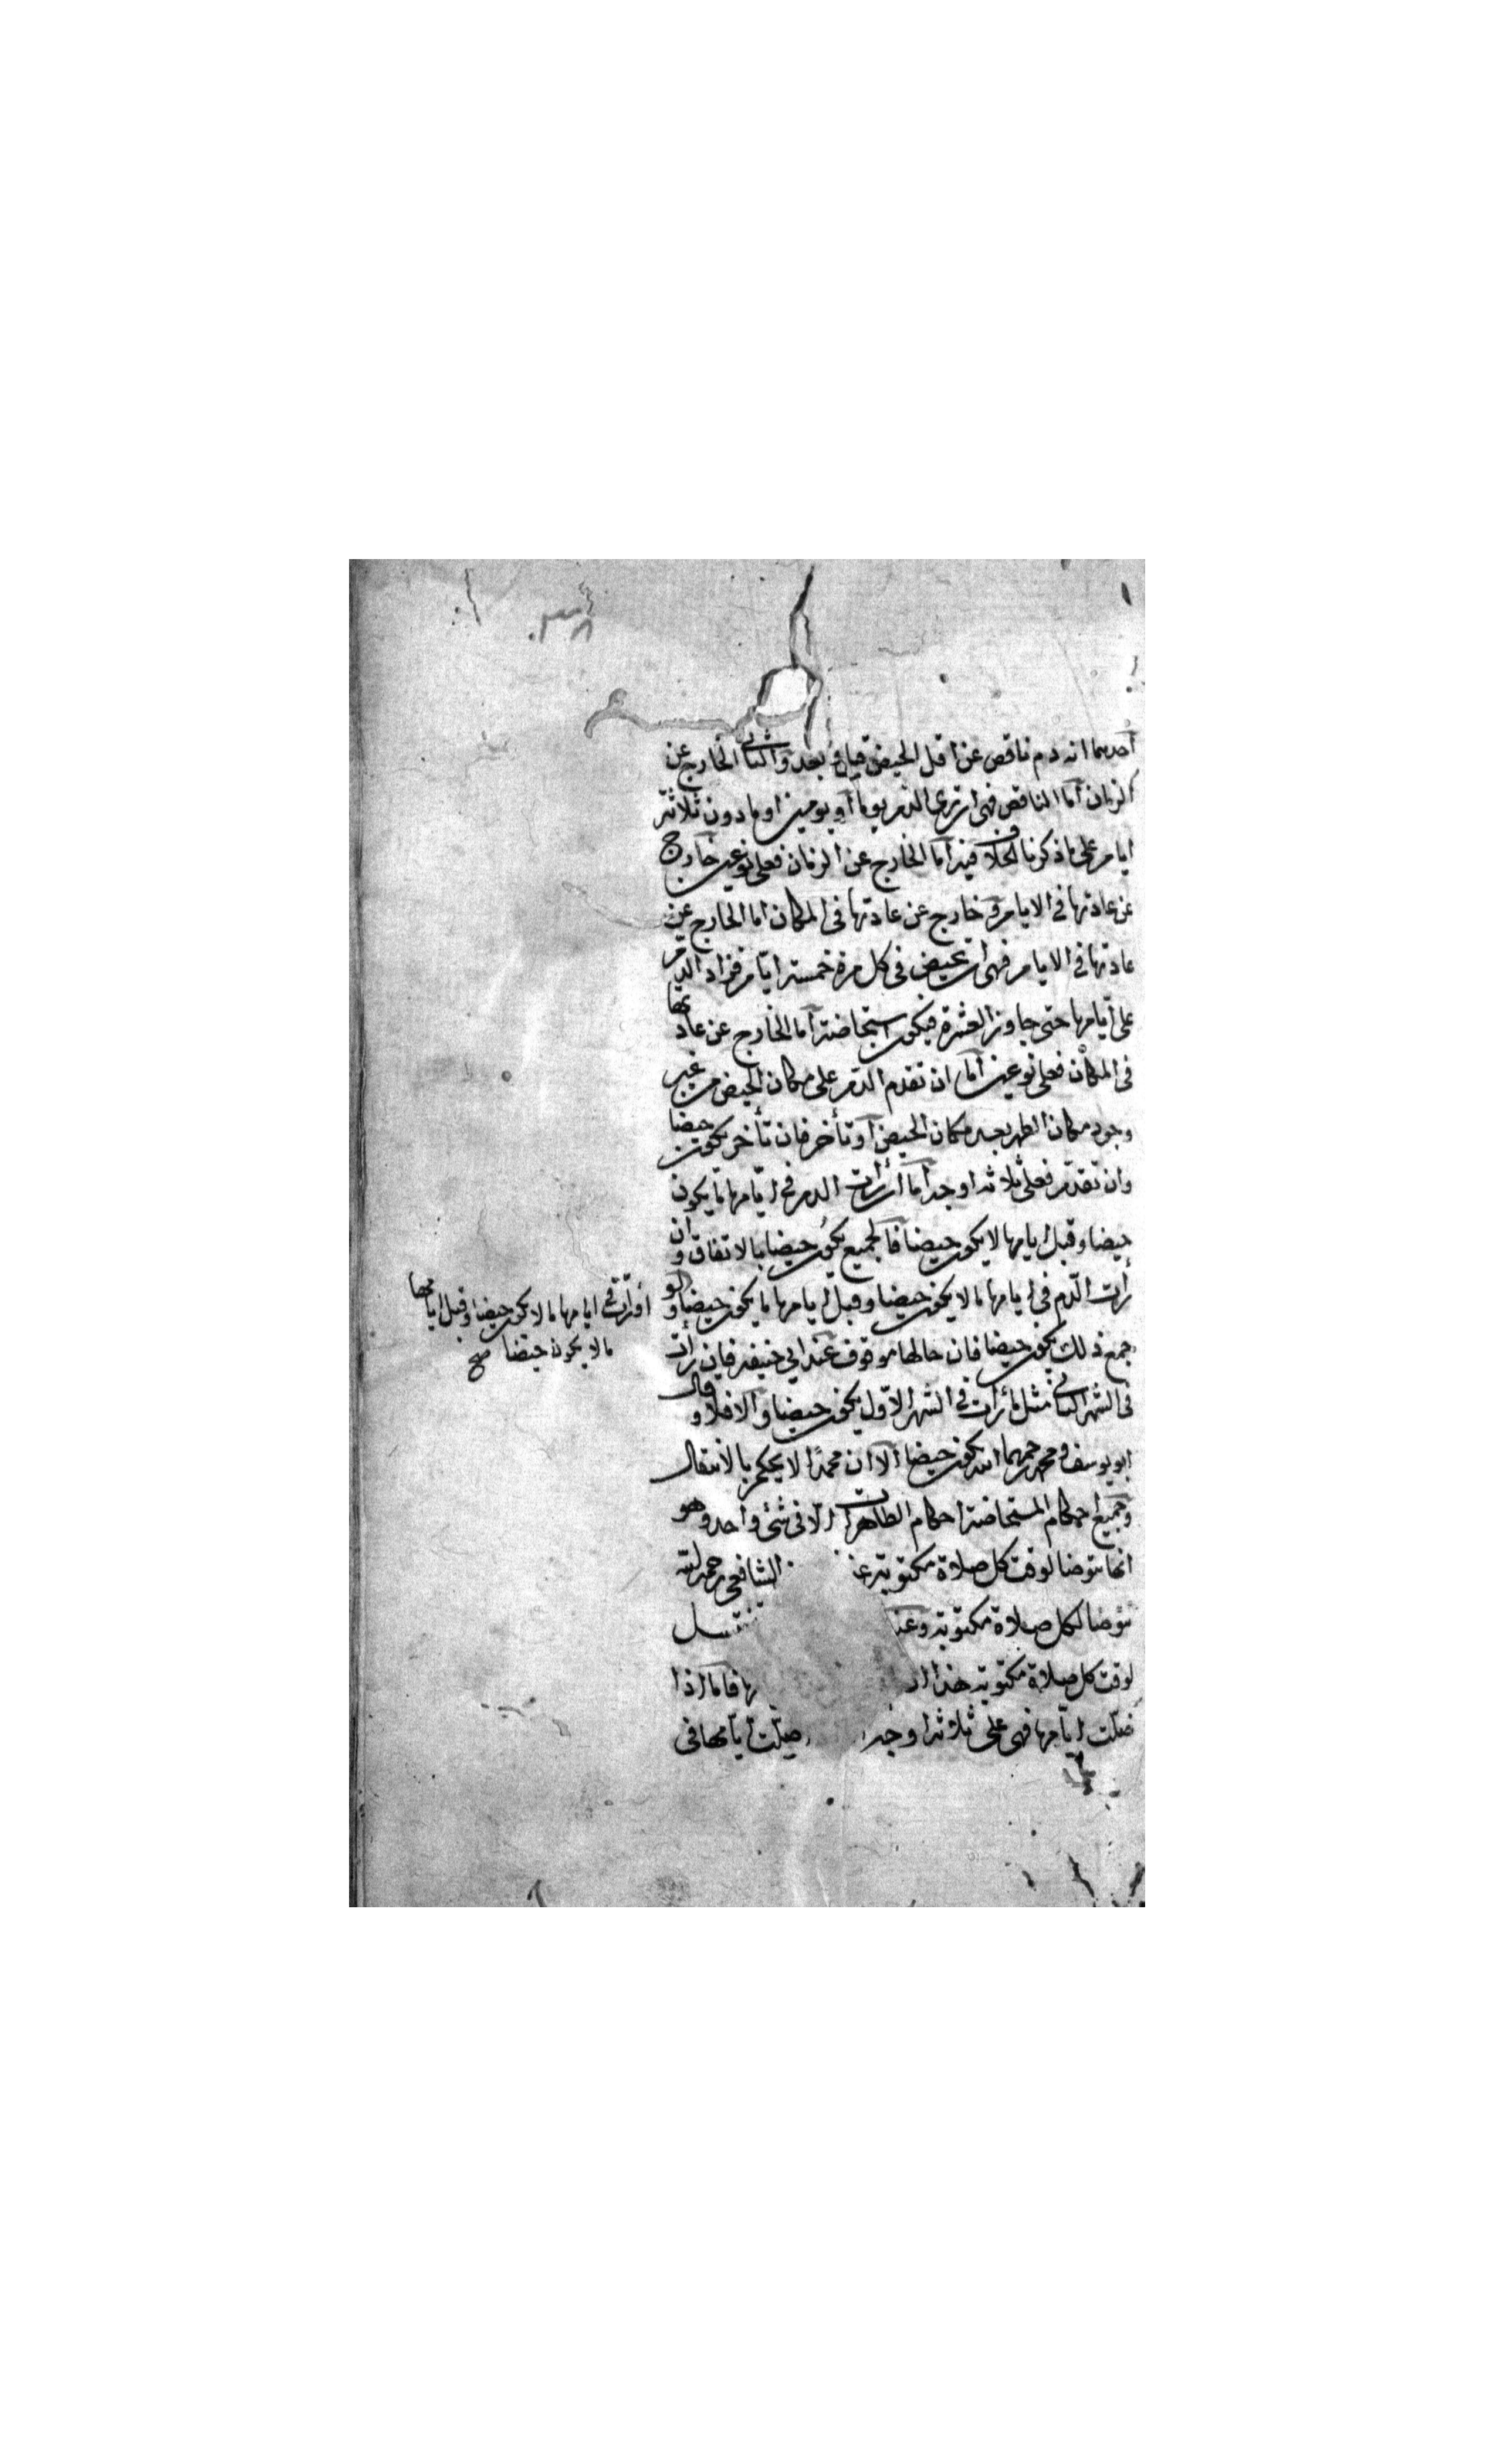 ٣٨
أحدهما انه دم ناقص عن اقل الحيض قبل بعد والثاني الخارج عن
الزمان أما الناقص فهى ان ترى الدم يوما أو يومين او ما دون ثلاثة
ايام على ما ذكرنا الخلاف فيه أما الخارج عن الزمان فعلى نوعين خارج
عن عادتها فى الايام و خارج عن عادتها فى المكان اما الخارج عن
عادتها فى الايام فهى ان تحيض فى كل مرة خمسة ايام فزاد الدم
على أيامها حتى جاوز العشرة فيكون استحاضة أما الخارج عن عادتها
فى المكان فعلى نوعين أما ان تقدم الدم على مكان الحيض من غير
وجود مكان الطهر بعد مكان الحيض أو تأخر فان تأخر يكون حيضا
وان تقدم فعلى ثلاثة اوجه أما أن رأت الدم فى ايامها ما يكون
حيضا وقبل ايامها لا يكون حيضا فالجميع يكون حيضا بالاتفاق وان
رأت الدم فى ايامها ما لا يكون حيضا وقبل ايامها ما يكون حيضا ولو
جمع ذلك يكون حيضا فان حالها موقوف عند ابي حنيفه فان رأت
فى الشهر الثاني مثل ما رأت فى الشهر الاول يكون حيضا والا فلا وقال
ابو يوسف و محمد رحمهما الله يكون حيضا الا ان محمدا لا يحكم بالانتقال
وجميع احكام المستحاضة احكام الطاهرات الا فى شئ واحد وهو
انها تتوضا لوقت كل صلاة مكتوبة الشافعى رحمه الله
تتوضا لكل صلاة مكتوبة وعند تغتسل
لوقت كل صلاة مكتوبة هذا فاما اذا
ضلت ايامها فهى على ثلاثة اوجه ضلت ايامها فى
أو رأت فى ايامها ما لا يكون حيضا وقبل ايامها
ما لا يكون حيضا صح